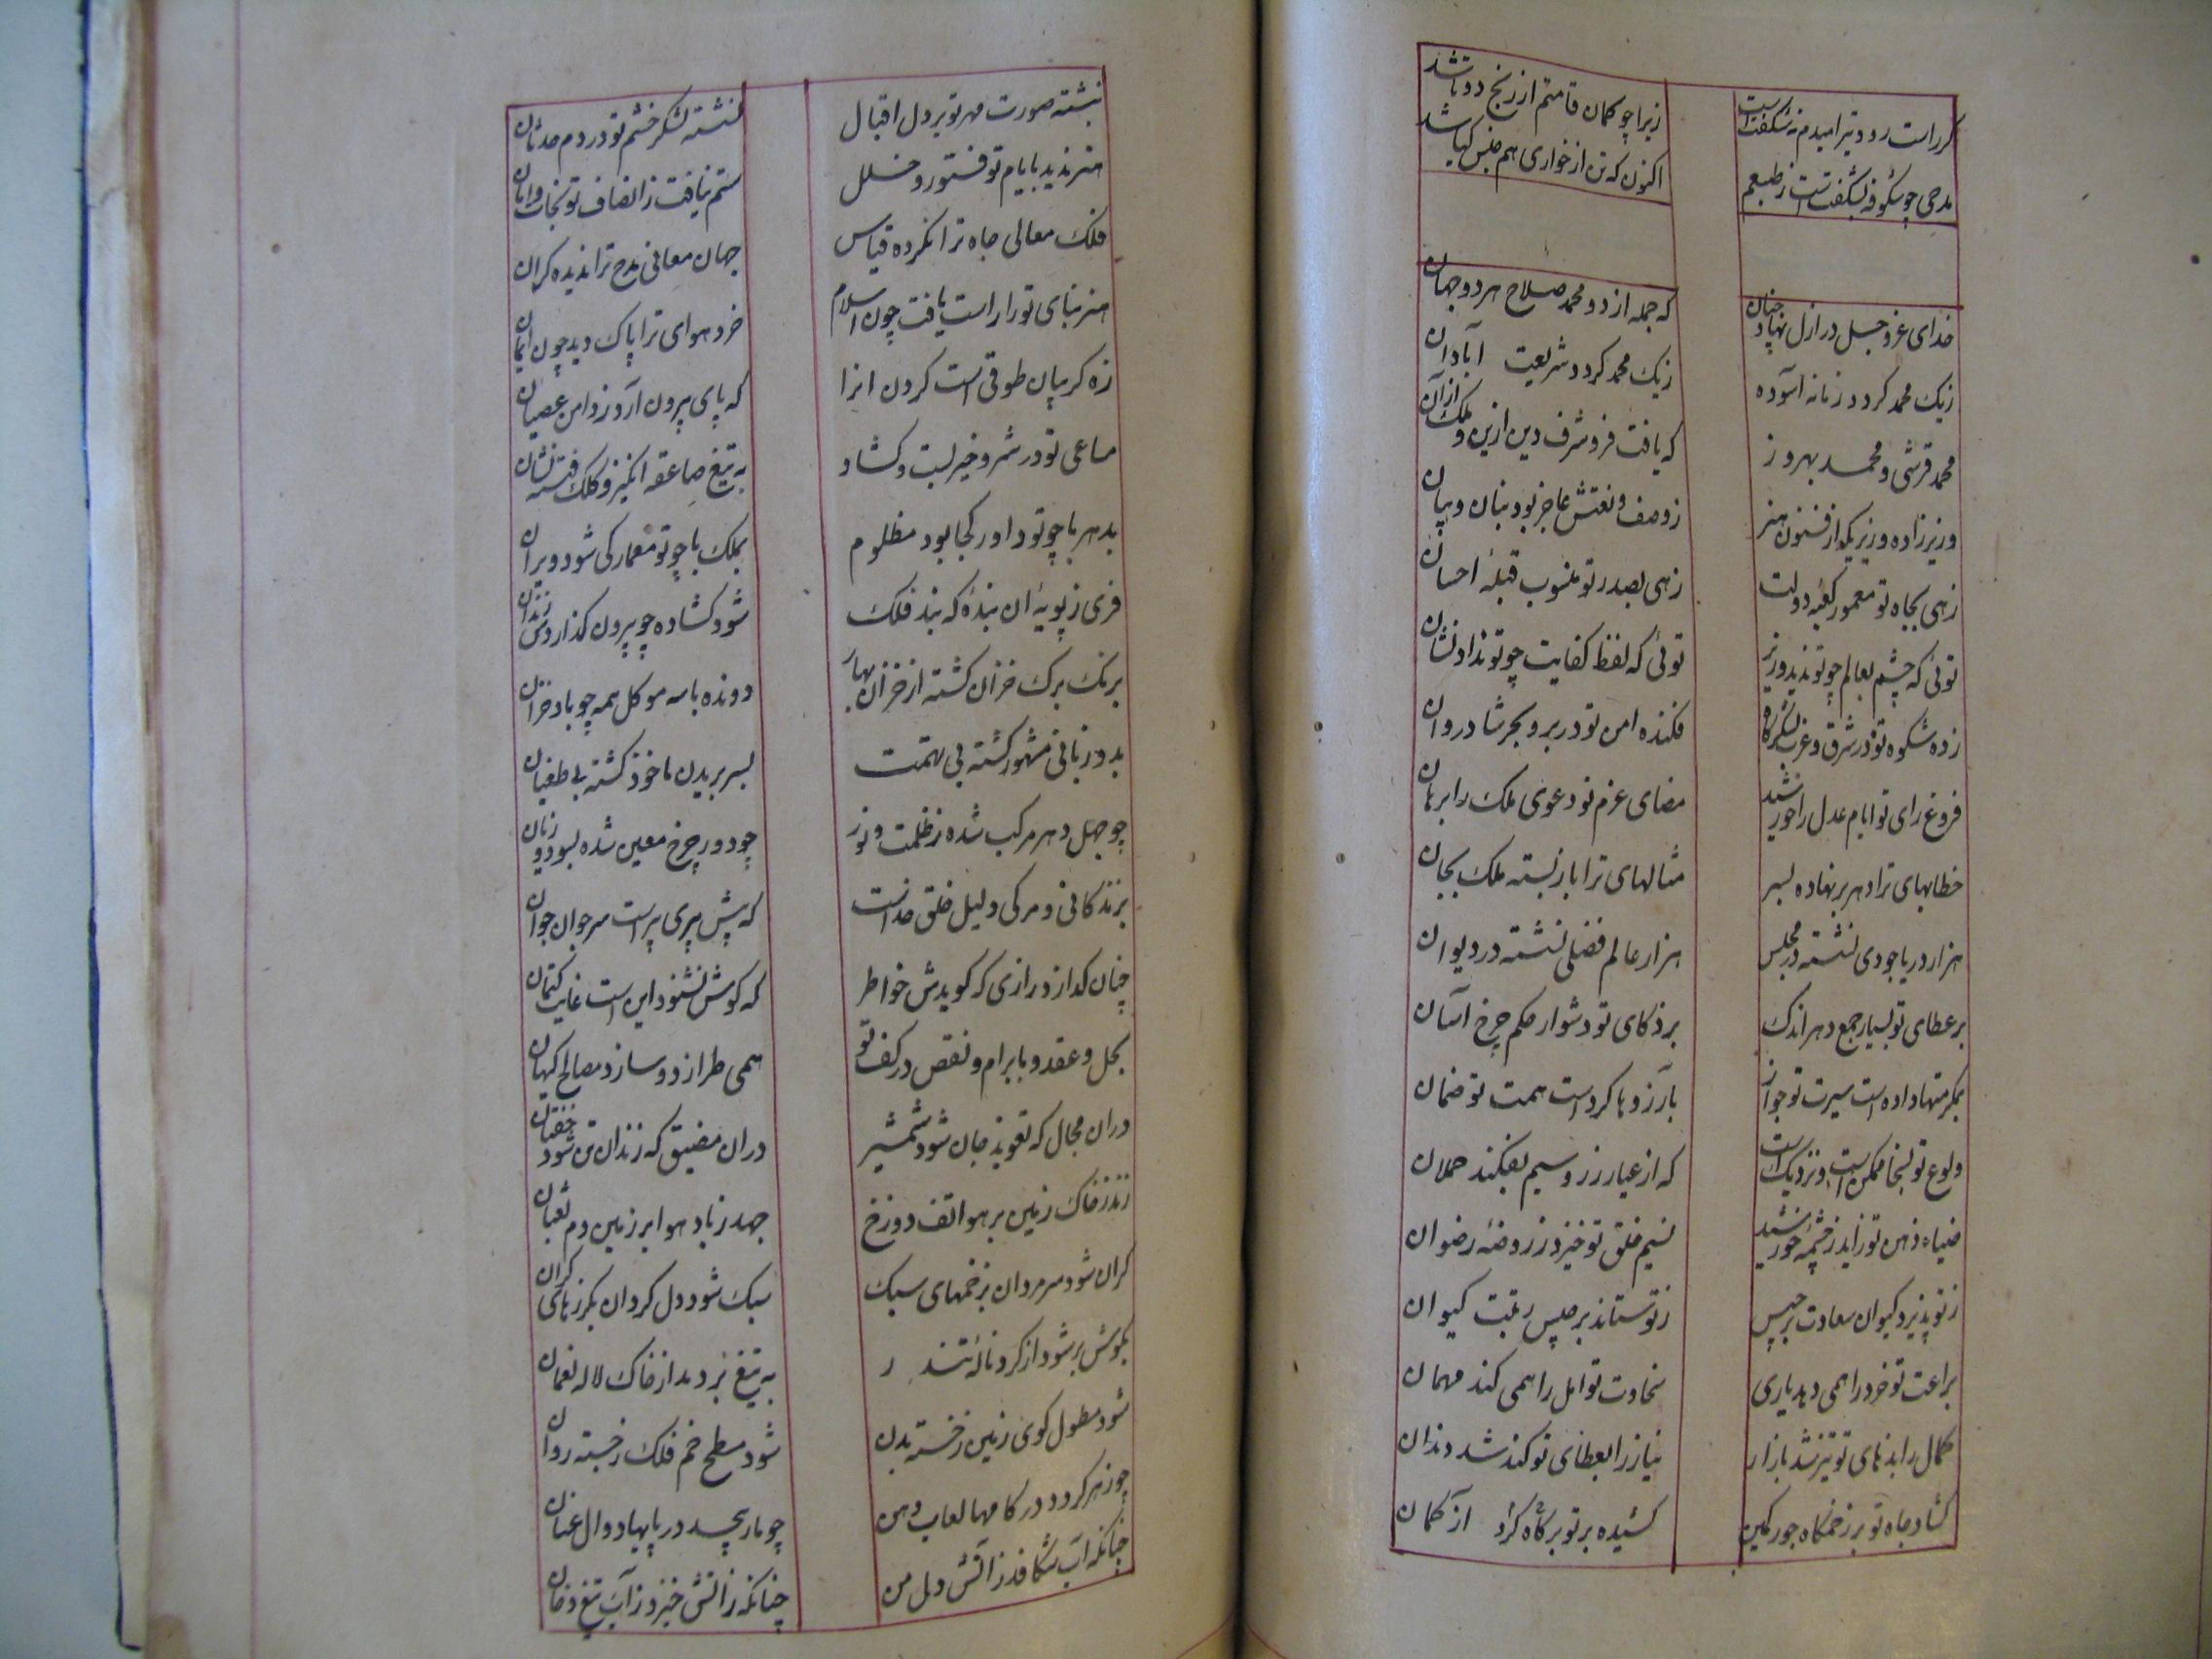 کر راست رود تیر امیدم نه شکفت است
زیرا چو کمان قامتم از رنج دو تا شد
مدحی چو شکوفه بشکفتست ز طبعم
اکنون که تن از خواری هم جنس کیا شد
خدای عز و جل در ازل نهاد چنان
که جمله از دو محمد صلاح هر دو جهان
زیک محمد کردد زمانه آسوده
زیک محمد کردد شریعت آبادان
محمد قرشی و محمد بهروز
که یافت فر و شرف دین ازین و ملک از آن
وزیرزاده وزیریکه از فنون هنر
ز وصف و نعتش عاجز بود بنان و بیان
زهی بجاه تو معمور کعبه دولت
زهی بصدر تو منسوب قبله احسان
توئی که چشم بعالم چو تو ندید وزیر
توئی که لفظ کفایت چو تو نداد نشان
زده شکوه تو در شرق و غرب لشکرگاه
فکنده امن تو در بر و بحر شادروان
فروغ رای تو ایام عدل را خورشید
مضای عزم تو دعوی ملک را برهان
خطابهای ترا دهر بر نهاده بسر
مثالهای ترا باز بسته ملک بجان
هزار دریا جودی نشسته در مجلس
هزار عالم فضلی نشسته در دیوان
بر عطای تو بسیار جمع دهر اندک
بر ذکای تو دشوار حکم چرخ آسان
بمکرمتها داده است سیرت تو جواز
بآرزوها کرد است همت تو ضمان
ولوع تو بسخا ممکن است و نزدیک است
که از عیار زر و سیم بفکند حملان
ضیاء ذهن تو زاید ز چشمه خورشید
نسیم خلق تو خیزد ز روضه رضوان
ز تو پذیرد کیوان سعادت برجیس
ز تو ستاند برجیس رتبت کیوان
براعت تو خرد را همی دهد یاری
سخاوت تو امل را همی کند مهمان
کمال را بذنهای تو تیز شد بازار
نیاز را بعطای تو کند شد دندان
کشاد جاه تو بر زخمگاه جور کمین
کشیده بر تو بر گاه کژ از کمان
نبشته صورت مهر تو بر دل اقبال
نشسته لشکر خشم تو در دم حدثان
هنر ندید بایام تو فتور و خلل
ستم نیافت ز انصاف تو نجات و امان
فلک معالی جاه ترا نکرده قیاس
جهان معانی مدح ترا ندیده کران
هنر بنای تو را راست یافت چون اسلام
خرد هوای ترا پاک دید چون ایمان
زه کریبان طوقی است کردن انرا
که پای بیرون آرد ز دامن عصیان
مساعی تو در شر و خیر بست و کشاد
به تیغ صاعقه انگیز و کلک فتنه نشان
بدهر با چو تو داور کجا بود مظلوم
بملک با چو تو معمار کی شود ویران
فری ز پویه آن بنده که بند فلک
شود کشاده چو بیرون کذاردش زندان
برنک برک خزان کشته از خزان بهار
دونده با سه موکل همه چو باد خزان
بدو زبانی مشهور کشته بی تهمت
بسر بریدن ماخوذ کشته بی طغیان
چو جهل دهر مرکب شده ز ظلمت و نور
چو دور چرخ معین شده بسود و زیان
بزندکانی و مرکی دلیل خلق خداست
که پیش پیری پیر است سر جوان جوان
چنان کدازد رازی که کویدش خواطر
که کوش نشنود این است غایت کتمان
بحل و عقد و بابرام و نقص در کف تو
همی طرازد و سازد مصالح کیهان
دران مجال که تعویذ جان شود شمشیر
دران مضیق که زندان تن شود خفتان
زند ز خاک زمین بر هوا تف دوزخ
جهد ز باد هوا بر زمین دم ثعبان
کران شود سر مردان بزخمهای سبک
سبک شود دل کردان بکرزهای کران
بکوش بر شود از کرد ناله تندر
به تیغ بر دمد از خاک لاله نعمان
شود مطول کوی زمین ز خسته بدن
شود مسطح خم فلک ز جسته روان
چو زهر کردد در کامها لعاب دهن
چو مار پیچد در پایها دوال عنان
چنانکه آب شکافد ز آتش دل من
چنانکه ز آتش خیزد ز آب تیغ دخان